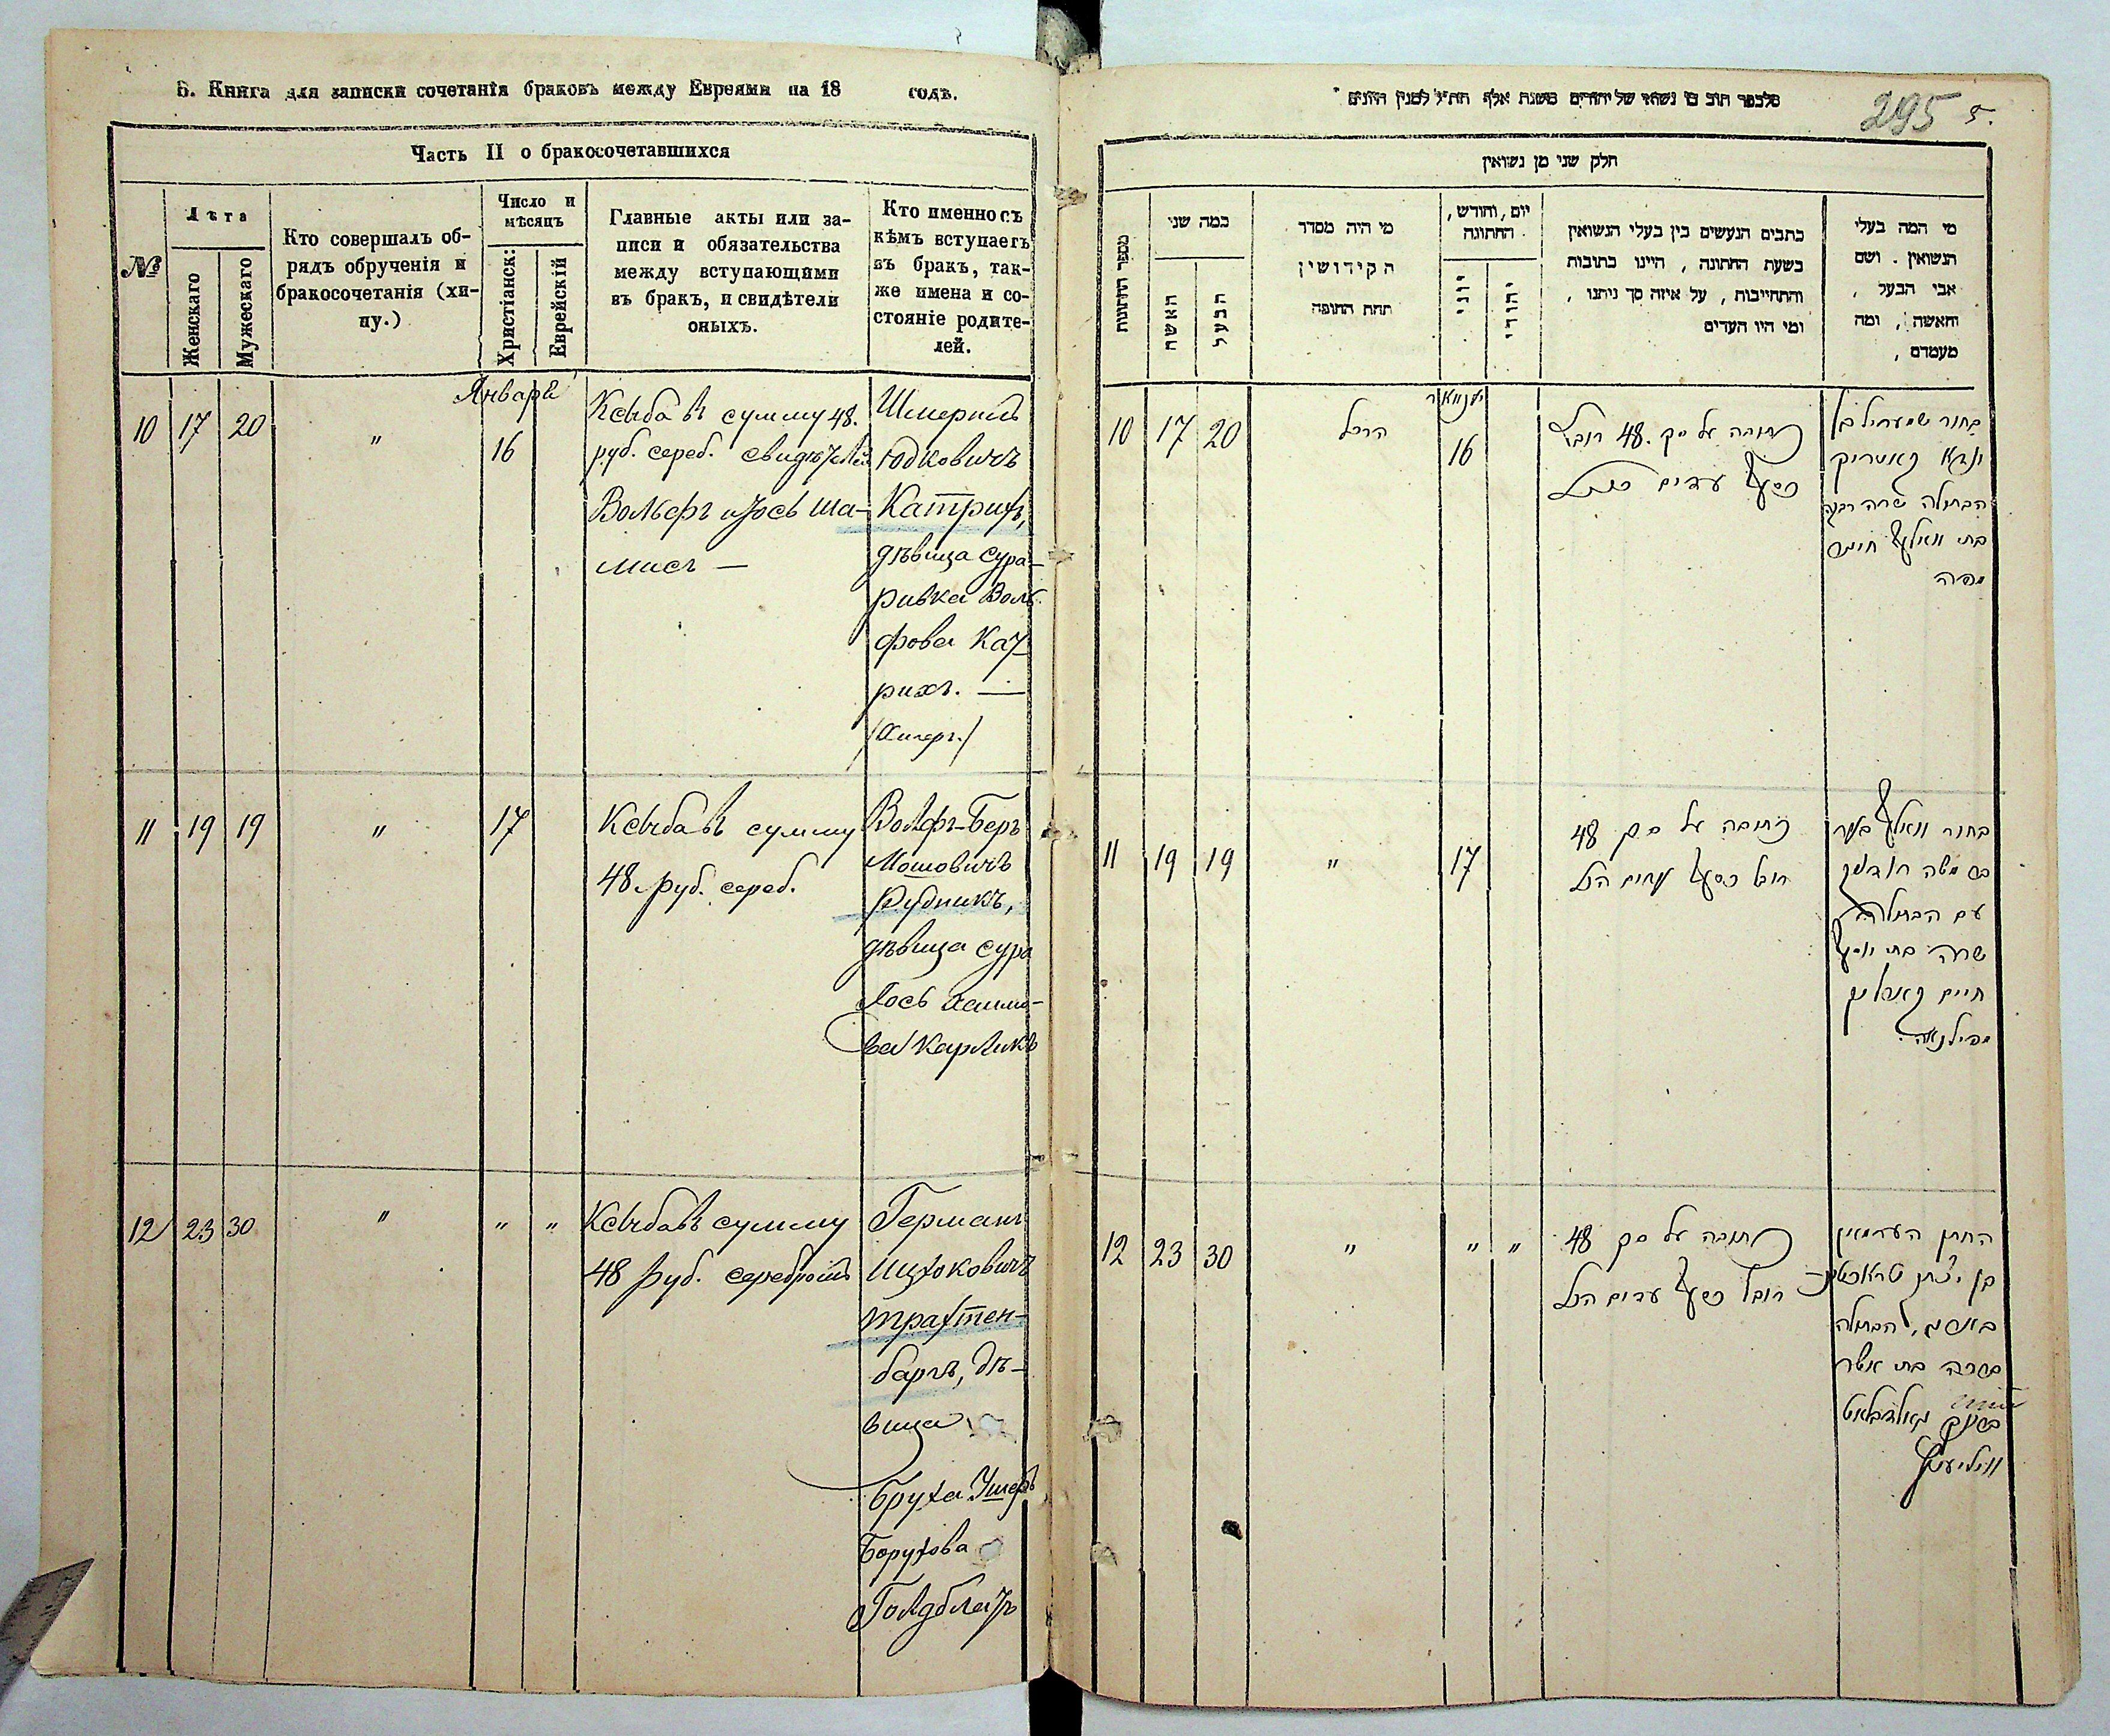 Б. Книга для записки сочетанія браковъ между Евреями на 18 годъ.
Часть II о бракосочетавшихся
№
Лѣта
Женскаго
Мужескаго
Кто совершалъ об-
рядъ обрученія и
бракосочетанія (хи-
пу.)
Число и
мѣсяцъ
Христіанск:
Еврейскій
Главные акты или за-
писи и обязательства
между вступающими
въ бракъ, и свидѣтели
оныхъ.
Кто именно съ
кѣмъ вступаетъ
въ бракъ, так-
же имена и со-
стояніе родите-
лей.
Января
10 17 20 " 16
Ксыба въ сумму 48.
руб. сереб. свидѣтели
Вольфъ и Іось Ша-
мисъ —
Шмериль
Юдковичъ
Катрихъ,
дѣвица Сура-
Ривка Воль-
фова Кат-
рихъ. —
11 19 19 " 17
Ксыба въ сумму
48 руб. сереб.
Вольфъ-Беръ
Мошовичъ
Рудникъ,
дѣвица Сура
Іось Хаимо-
ва Карликъ
12 23 30 " " "
Ксыба въ сумму
48 руб. серебромъ
Германъ
Ицхоковичъ
Трахтен-
баргъ, дѣ-
вица
Бруха Ушеръ
Борухова
Голдблатъ
295 5.
חלק שני מן נשואין
מספר החתונות
כמה שני
האשה
הבעל
מי היה מסדר
הקידושין
תחת החופה
יום, וחודש,
החתונה
יוני
יהודי
כתבים הנעשים בין בעלי הנשואין
בשעת החתונה, היינו כתובות
והתחייבות, על איזה סך ניתנו,
ומי היו העדים
מי המה בעלי
הנשואין. ושם
אבי הבעל,
והאשה, ומה
מעמדם,
10 17 20
16
כתובה על סך 48 רובל
כסף עדים
בחור
הבתולה שרה רבקה
בת וואלף
11 19 19 " 17
כתובה על סך 48
רובל כסף עדים הנ"ל
בחור וואלף בער
בן משה רודניק
עם הבתולה
שרה בת יוסף
חיים קארליק
12 23 30 " " "
כתובה על סך 48
רובל כסף עדים הנ"ל
החתן הערמאן
בן יצחק טראכטין
בארג, הבתולה
ברכה בת אשר
ברוך גאלדבלאט